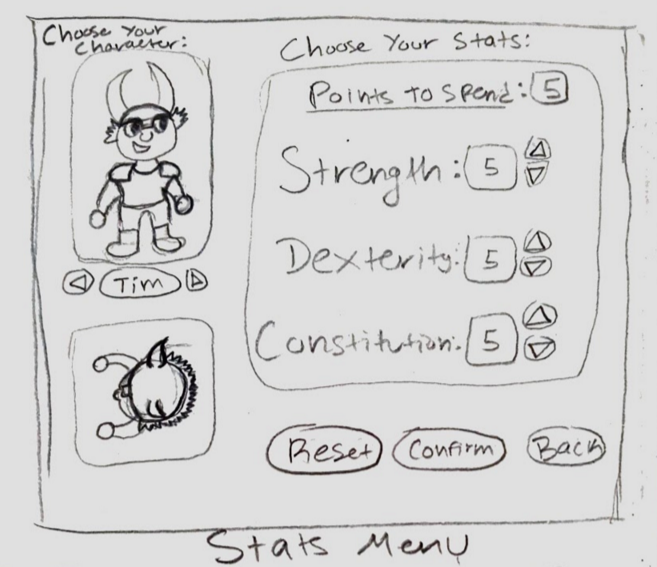 Choose Your
Character:
Tim
Choose Your Stats:
Points To Spend: 5
Strength: 5
Dexterity: 5
Constitution: 5
Reset Confirm Back
Stats Menu